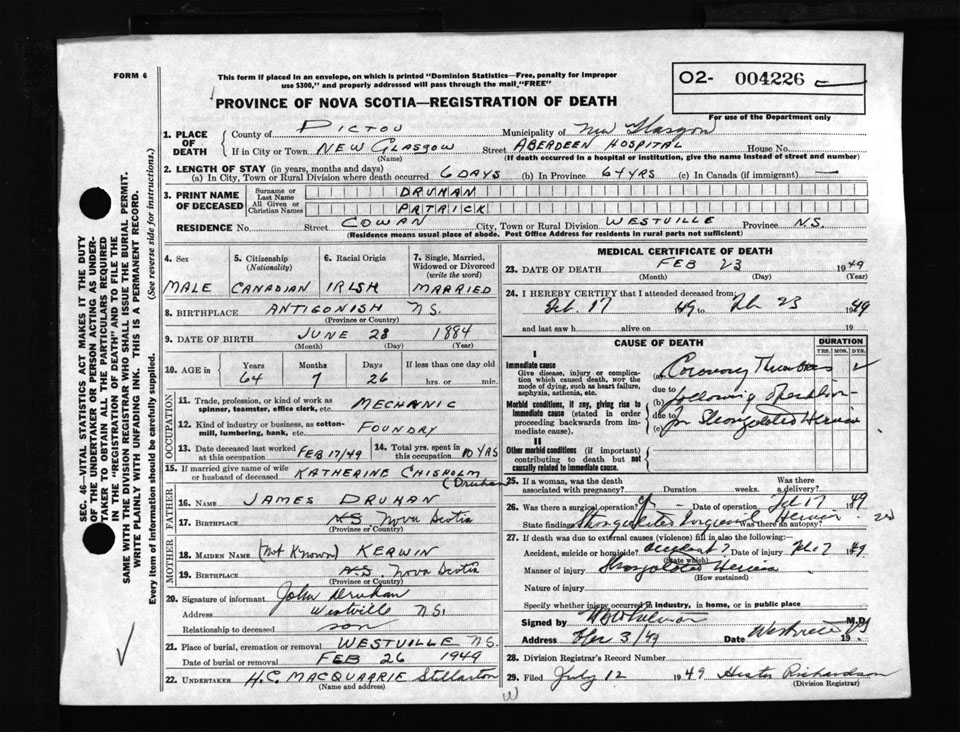 FORM 6
This form if placed in an envelope, on which is printed "Dominion Statistics—Free, penalty for improper
use $300," and properly addressed will pass through the mail "FREE"
O2- 004226
For use of the Department only
PROVINCE OF NOVA SCOTIA—REGISTRATION OF DEATH
1. PLACE OF DEATH County of PICTOU Municipality of New Glasgow
If in City or Town NEW GLASGOW Street ABERDEEN HOSPITAL House No.
(Name) (If death occurred in a hospital or institution, give the name instead of street and number)
2. LENGTH OF STAY (in years, months and days)
(a) In City, Town or Rural Division where death occurred 6 DAYS (b) In Province 64 YRS (c) In Canada (if immigrant) —
3. PRINT NAME OF DECEASED Surname or Last Name DRUHAN
All Given or Christian Names PATRICK
RESIDENCE No. Street COWAN City, Town or Rural Division WESTVILLE Province N.S.
(Residence means usual place of abode. Post Office Address for residents in rural parts not sufficient)
4. Sex 5. Citizenship (Nationality) 6. Racial Origin 7. Single, Married, Widowed or Divorced (write the word)
MALE CANADIAN IRISH MARRIED
8. BIRTHPLACE ANTIGONISH N.S.
(Province or Country)
9. DATE OF BIRTH JUNE 28 1884
(Month) (Day) (Year)
10. AGE in Years Months Days If less than one day old
64 7 26 hrs. or min.
OCCUPATION
11. Trade, profession, or kind of work as spinner, teamster, office clerk, etc. MECHANIC
12. Kind of industry or business, as cotton-mill, lumbering, bank, etc. FOUNDRY
13. Date deceased last worked at this occupation FEB 17/49 14. Total yrs. spent in this occupation 10 YRS
15. If married give name of wife or husband of deceased KATHERINE CHISHOLM (Druhan)
FATHER
16. NAME JAMES DRUHAN
17. BIRTHPLACE N.S. Nova Scotia
(Province or Country)
MOTHER
18. MAIDEN NAME (Not Known) KERWIN
19. BIRTHPLACE N.S. Nova Scotia
(Province or Country)
20. Signature of informant John Druhan
Address Westville N.S.
Relationship to deceased son
21. Place of burial, cremation or removal WESTVILLE N.S.
Date of burial or removal FEB 26 1949
22. UNDERTAKER H.C. MACQUARRIE Stellarton
(Name and address)
MEDICAL CERTIFICATE OF DEATH
23. DATE OF DEATH FEB 23 1949
(Month) (Day) (Year)
24. I HEREBY CERTIFY that I attended deceased from:
Feb. 17 49 to Feb 23 1949
and last saw h alive on 19
CAUSE OF DEATH
DURATION
YRS. MOS. DYS.
I
Immediate cause
Give disease, injury or complication which caused death, NOT the mode of dying, such as heart failure, asphyxia, asthenia, etc.
(a) Coronary Thrombosis
due to
Morbid conditions, if any, giving rise to immediate cause (stated in order proceeding backwards from immediate cause).
(b) following operation
due to
(c) for Strangulated Hernia
II
Other morbid conditions (if important) contributing to death but not causally related to immediate cause.
25. If a woman, was the death associated with pregnancy? Duration weeks. Was there a delivery?
26. Was there a surgical operation? Date of operation Feb 17 1949
State findings Strangulated Inguinal Hernia Was there an autopsy? no
27. If death was due to external causes (violence) fill in also the following:—
Accident, suicide or homicide? accident? Date of injury Feb 17 1949
(State which)
Manner of injury Strangulated Hernia
(How sustained)
Nature of injury
Specify whether injury occurred in industry, in home, or in public place
Signed by M.D.
Address Mar 3/49 Date Westville 19
28. Division Registrar's Record Number
29. Filed July 12 1949 Hester Richardson
(Division Registrar)
W
SEC. 46—VITAL STATISTICS ACT MAKES IT THE DUTY
OF THE UNDERTAKER OR PERSON ACTING AS UNDER-
TAKER TO OBTAIN ALL THE PARTICULARS REQUIRED
IN THE "REGISTRATION OF DEATH" AND TO FILE THE
SAME WITH THE DIVISION REGISTRAR WHO SHALL ISSUE THE BURIAL PERMIT.
WRITE PLAINLY WITH UNFADING INK. THIS IS A PERMANENT RECORD.
Every item of information should be carefully supplied. (See reverse side for instructions.)